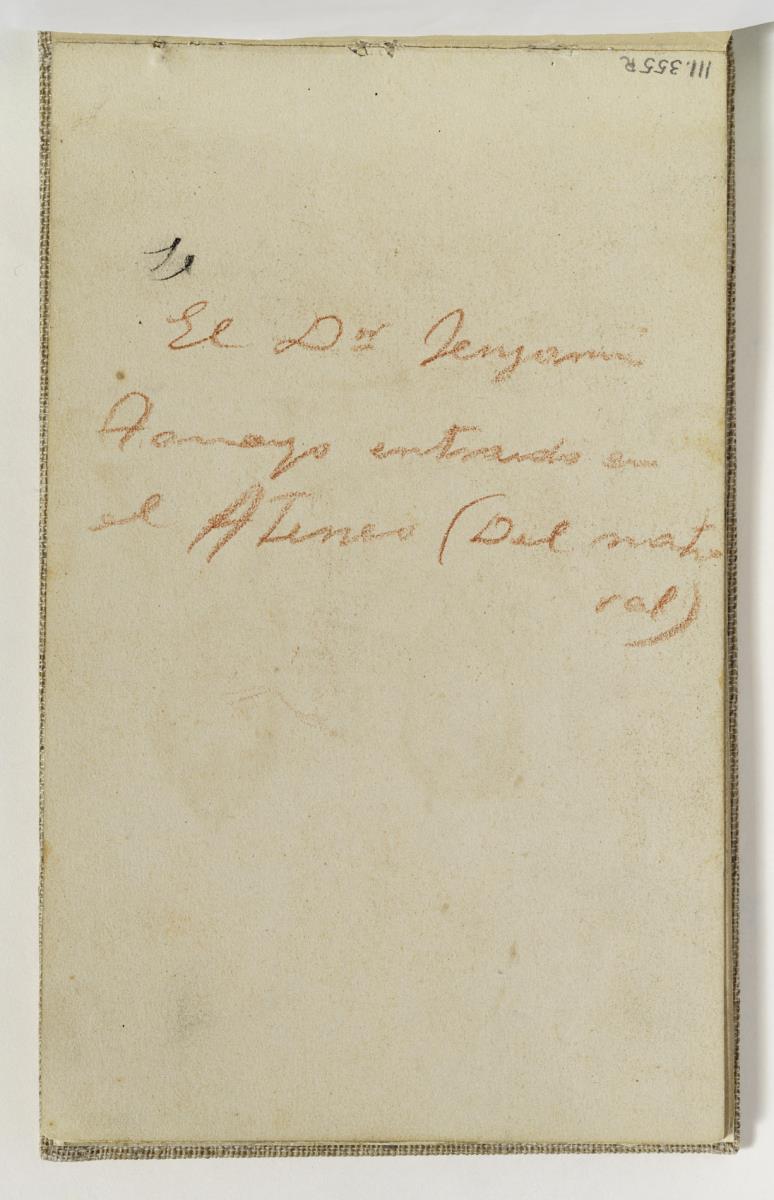 III.355R
El Dor Benjamin
Tamayo entrando en
el Ateneo (Del natu
ral)